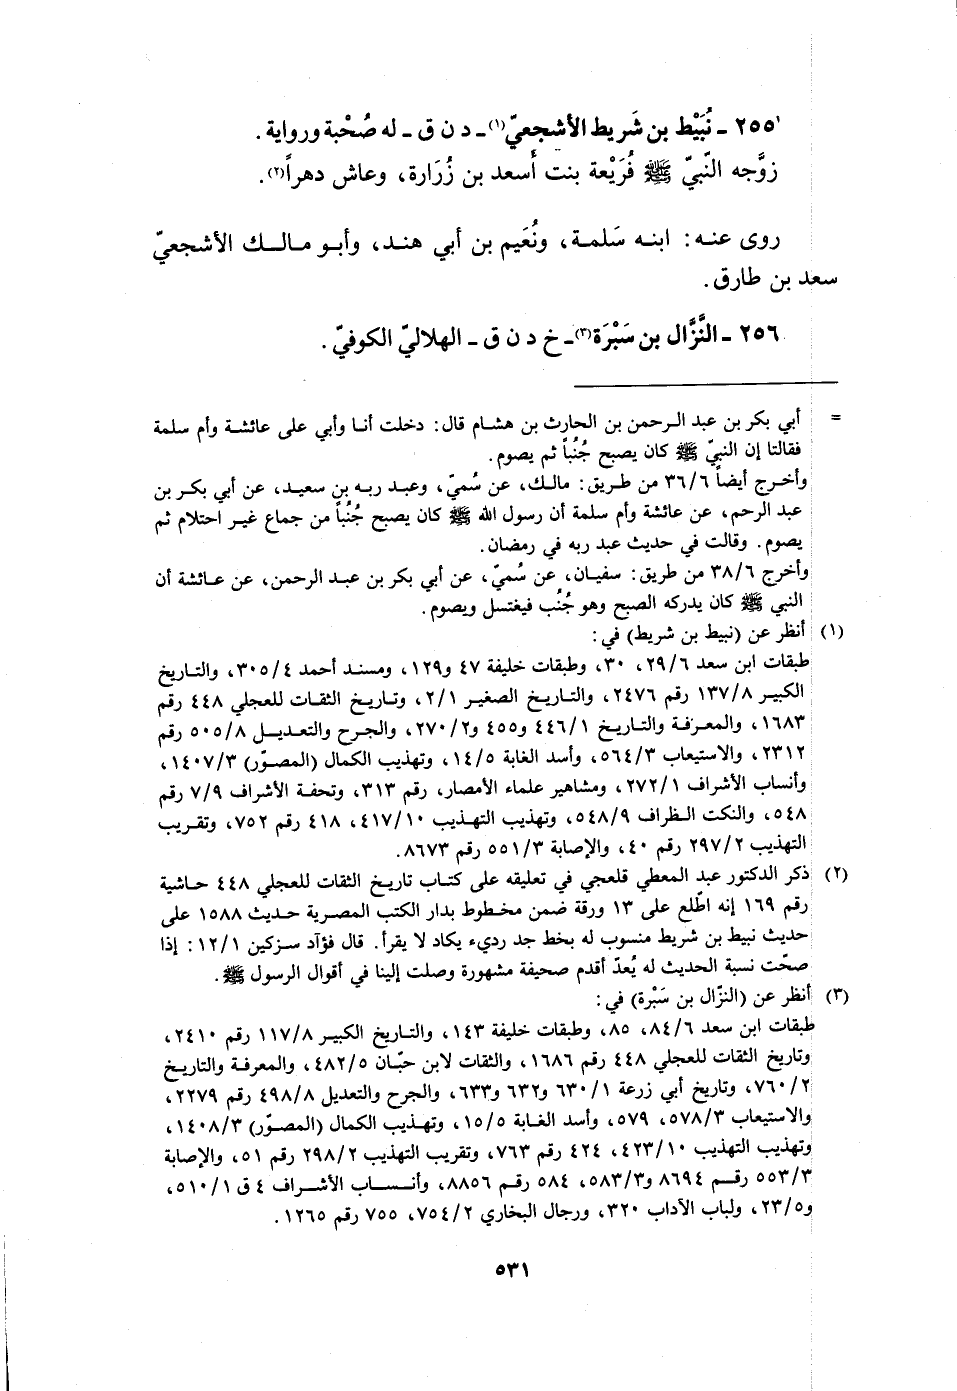 ٢٥٥ ـ نُبَيْط بن شَريط الأشجعيّ(١) ـ د ن ق ـ له صُحْبة ورواية.
زوَّجه النّبيّ ﷺ فُرَيْعة بنت أسعد بن زُرَارة، وعاش دهراً(٢).
روى عنه: ابنه سَلمة، ونُعَيم بن أبي هند، وأبو مالك الأشجعيّ
سعد بن طارق.
٢٥٦ ـ النَّزَّال بن سَبْرَة(٣) ـ خ د ن ق ـ الهلاليّ الكوفيّ.
= أبي بكر بن عبد الرحمن بن الحارث بن هشام قال: دخلت أنا وأبي على عائشة وأم سلمة
فقالتا إن النبيّ ﷺ كان يصبح جُنُباً ثم يصوم.
وأخرج أيضاً ٣٦/٦ من طريق: مالك، عن سُميّ، وعبد ربه بن سعيد، عن أبي بكر بن
عبد الرحم، عن عائشة وأم سلمة أن رسول الله ﷺ كان يصبح جُنُباً من جماع غير احتلام ثم
يصوم. وقالت في حديث عبد ربه في رمضان.
وأخرج ٣٨/٦ من طريق: سفيان، عن سُميّ، عن أبي بكر بن عبد الرحمن، عن عائشة أن
النبي ﷺ كان يدركه الصبح وهو جُنُب فيغتسل ويصوم.
(١) أنظر عن (نبيط بن شريط) في:
طبقات ابن سعد ٢٩/٦، ٣٠، وطبقات خليفة ٤٧ و١٢٩، ومسند أحمد ٣٠٥/٤، والتاريخ
الكبير ١٣٧/٨ رقم ٢٤٧٦، والتاريخ الصغير ٢/١، وتاريخ الثقات للعجلي ٤٤٨ رقم
١٦٨٣، والمعرفة والتاريخ ٤٤٦/١ و٤٥٥ و٢٧٠/٢، والجرح والتعديل ٥٠٥/٨ رقم
٢٣١٢، والاستيعاب ٥٦٤/٣، وأسد الغابة ١٤/٥، وتهذيب الكمال (المصوّر) ١٤٠٧/٣،
وأنساب الأشراف ٢٧٢/١، ومشاهير علماء الأمصار، رقم ٣١٣، وتحفة الأشراف ٧/٩ رقم
٥٤٨، والنكت الظراف ٥٤٨/٩، وتهذيب التهذيب ٤١٧/١٠، ٤١٨ رقم ٧٥٢، وتقريب
التهذيب ٢٩٧/٢ رقم ٤٠، والإصابة ٥٥١/٣ رقم ٨٦٧٣.
(٢) ذكر الدكتور عبد المعطي قلعجي في تعليقه على كتاب تاريخ الثقات للعجلي ٤٤٨ حاشية
رقم ١٦٩ إنه اطّلع على ١٣ ورقة ضمن مخطوط بدار الكتب المصرية حديث ١٥٨٨ على
حديث نبيط بن شريط منسوب له بخط جد رديء يكاد لا يقرأ. قال فؤآد سزكين ١٢/١: إذا
صحّت نسبة الحديث له يُعدّ أقدم صحيفة مشهورة وصلت إلينا في أقوال الرسول ﷺ.
(٣) أنظر عن (النزّال بن سَبْرة) في:
طبقات ابن سعد ٨٤/٦، ٨٥، وطبقات خليفة ١٤٣، والتاريخ الكبير ١١٧/٨ رقم ٢٤١٠،
وتاريخ الثقات للعجلي ٤٤٨ رقم ١٦٨٦، والثقات لابن حبّان ٤٨٢/٥، والمعرفة والتاريخ
٧٦٠/٢، وتاريخ أبي زرعة ٦٣٠/١ و٦٣٢ و٦٣٣، والجرح والتعديل ٤٩٨/٨ رقم ٢٢٧٩،
والاستيعاب ٥٧٨/٣، ٥٧٩، وأسد الغابة ١٥/٥، وتهذيب الكمال (المصوّر) ١٤٠٨/٣،
وتهذيب التهذيب ٤٢٣/١٠، ٤٢٤ رقم ٧٦٣، وتقريب التهذيب ٢٩٨/٢ رقم ٥١، والإصابة
٥٥٣/٣ رقم ٨٦٩٤ و٥٨٣/٣، ٥٨٤ رقم ٨٨٥٦، وأنساب الأشراف ٤ ق ٥١٠/١،
و٢٣/٥، ولباب الآداب ٣٢٠، ورجال البخاري ٧٥٤/٢، ٧٥٥ رقم ١٢٦٥.
٥٣١